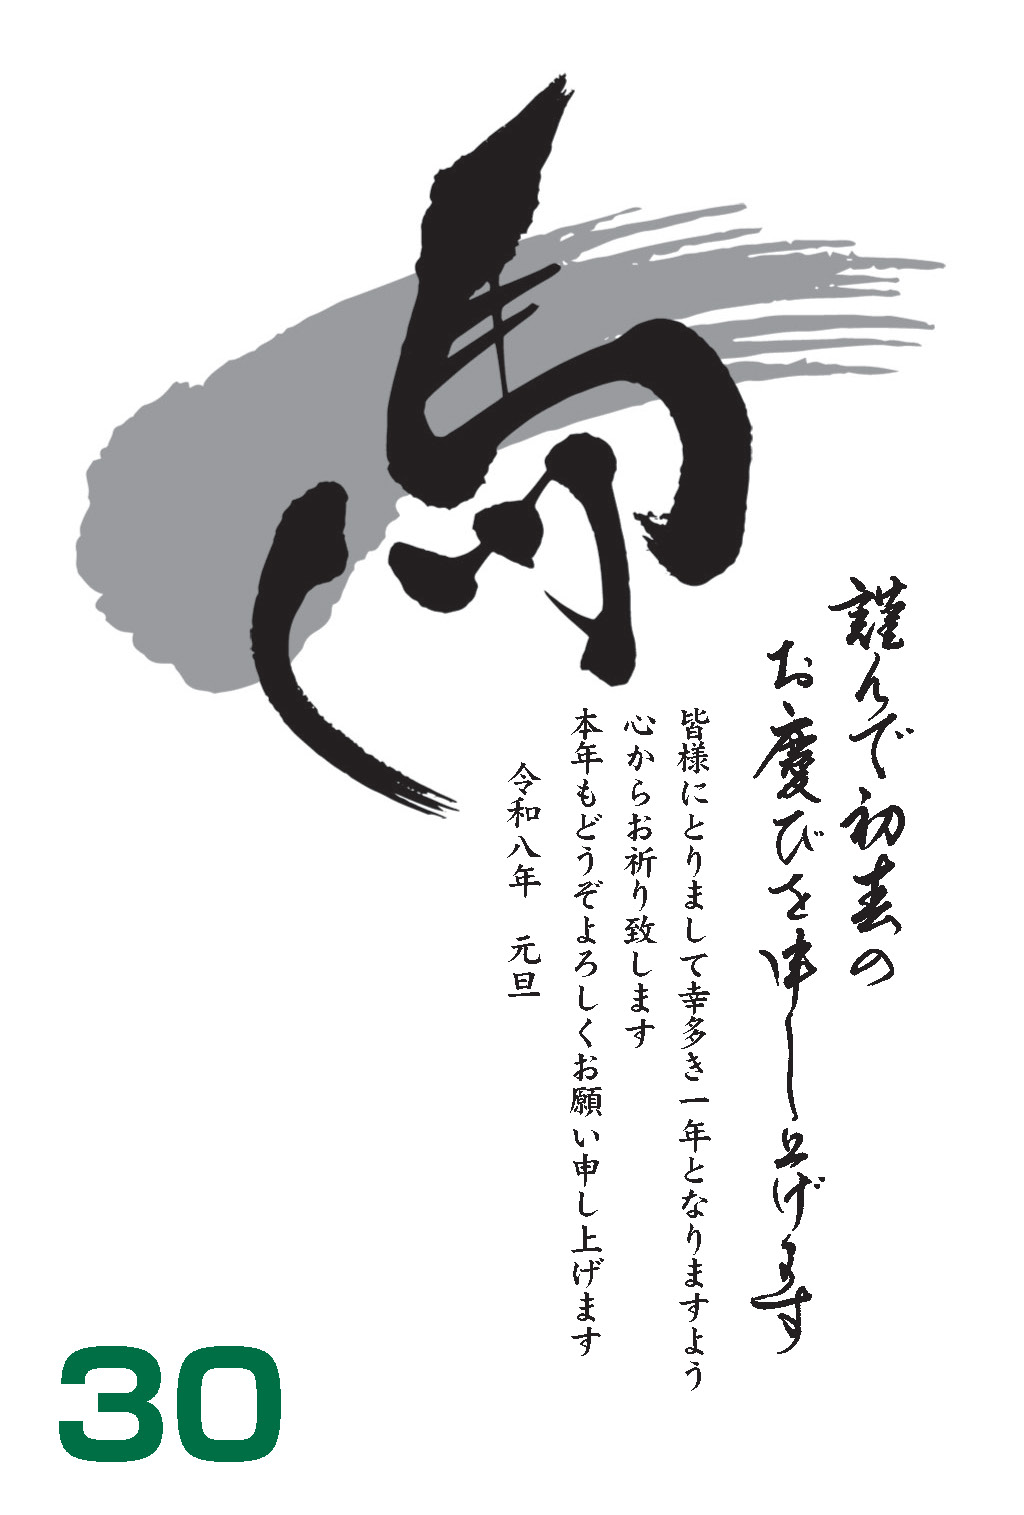 馬
謹んで初春の
お慶びを申し上げます
皆様にとりまして幸多き一年となりますよう
心からお祈り致します
本年もどうぞよろしくお願い申し上げます
令和八年　元旦
30